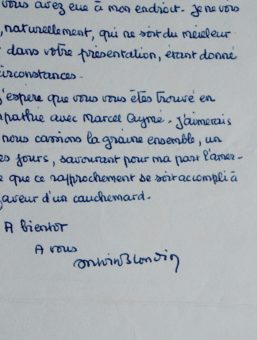 vous avez eue à mon endroit. Je ne vois
, naturellement, qui ne soit du meilleur
dans votre présentation, étant donné
circonstances.
J'espère que vous vous êtes trouvé en
pathie avec Marcel Aymé. J'aimerais
nous cassions la graine ensemble, un
es jours, savourant pour ma part l'amer-
e que ce rapprochement se soit accompli à
faveur d'un cauchemard.
A bientot
A vous
Antoine Blondin